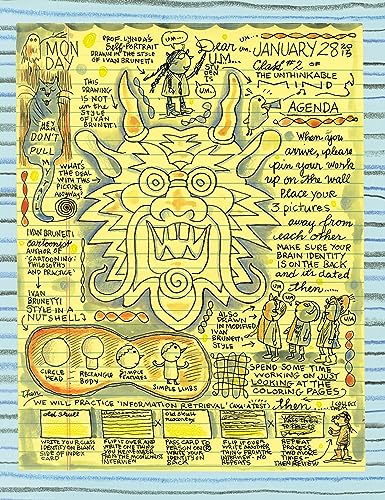 MON
DAY
PROF. LYNDA'S
SELF-PORTRAIT
DRAWN IN THE STYLE
OF IVAN BRUNETTI
UM...
Dear
UM...
UM...
UM...
JANUARY 28
2015
CLASS #2 OF
THE UNTHINKABLE
MIND
AGENDA
THIS
DRAWING
IS NOT
IN THE
STYLE
OF IVAN
BRUNETTI
HEY
MAN
DON'T
PULL
M
WHAT'S
THE DEAL
WITH THIS
PICTURE
ANYWAY?
When you
arrive, please
pin your work
up on the wall
Place your
3 pictures
away from
each other
MAKE SURE YOUR
BRAIN IDENTITY
IS ON THE BACK
and its dated
then...
IVAN BRUNETTI
cartoonist
AUTHOR OF
'CARTOONING:
PHILOSOPHY
AND PRACTICE'
IVAN
BRUNETTI
STYLE IN A
NUTSHELL?
ALSO
DRAWN
IN MODIFIED
IVAN
BRUNETTI
STYLE
UM
UM
UM
CIRCLE
HEAD
RECTANGLE
BODY
SIMPLE
FEATURES
SIMPLE LIMBS
SPEND SOME TIME
WORKING ON JUST
LOOKING AT THE
COLORING PAGES?
Then
WE WILL PRACTICE 'INFORMATION RETRIEVAL'
then...
WRITE YOUR CLASS
IDENTITY ON BLANK
SIDE OF INDEX
CARD
FLIP IT OVER AND
WRITE ONE THING
YOU REMEMBER
INTERVIEW
PASS CARD TO
PERSON ON
WRITE YOUR
IDENTITY ON
BACK
FLIP IT OVER
WRITE ANOTHER
THING FROM THE
NO
REPEATS
REPEAT
PROCESS
TWO MORE
TIMES
THEN REVIEW